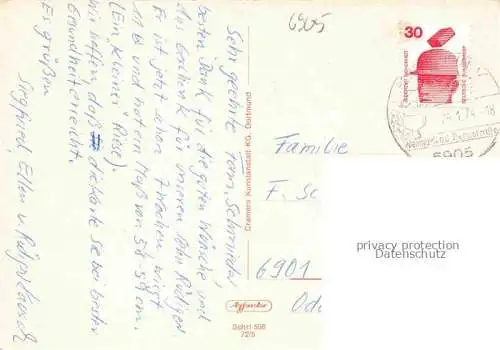 6905
Sehr geehrte Fam. Schmidt
besten Dank für die guten Wünsche und
das Geschenk für unseren Sohn Rüdiger.
Er ist jetzt schon 7 Wochen, wiegt
und hat ein Maß von 58 cm.
(Ein "kleiner" Riese).
Wir hoffen, daß die Karte Sie bei bester
Gesundheit erreicht.
Es grüßen
Siegfried, Ellen u. Rüdiger
Cramers Kunstanstalt KG, Dortmund
Schri 598
72/5
30
DEUTSCHE BUNDESPOST
74-18
5905
Familie
F. Sc
6901
Ode
privacy protection
Datenschutz